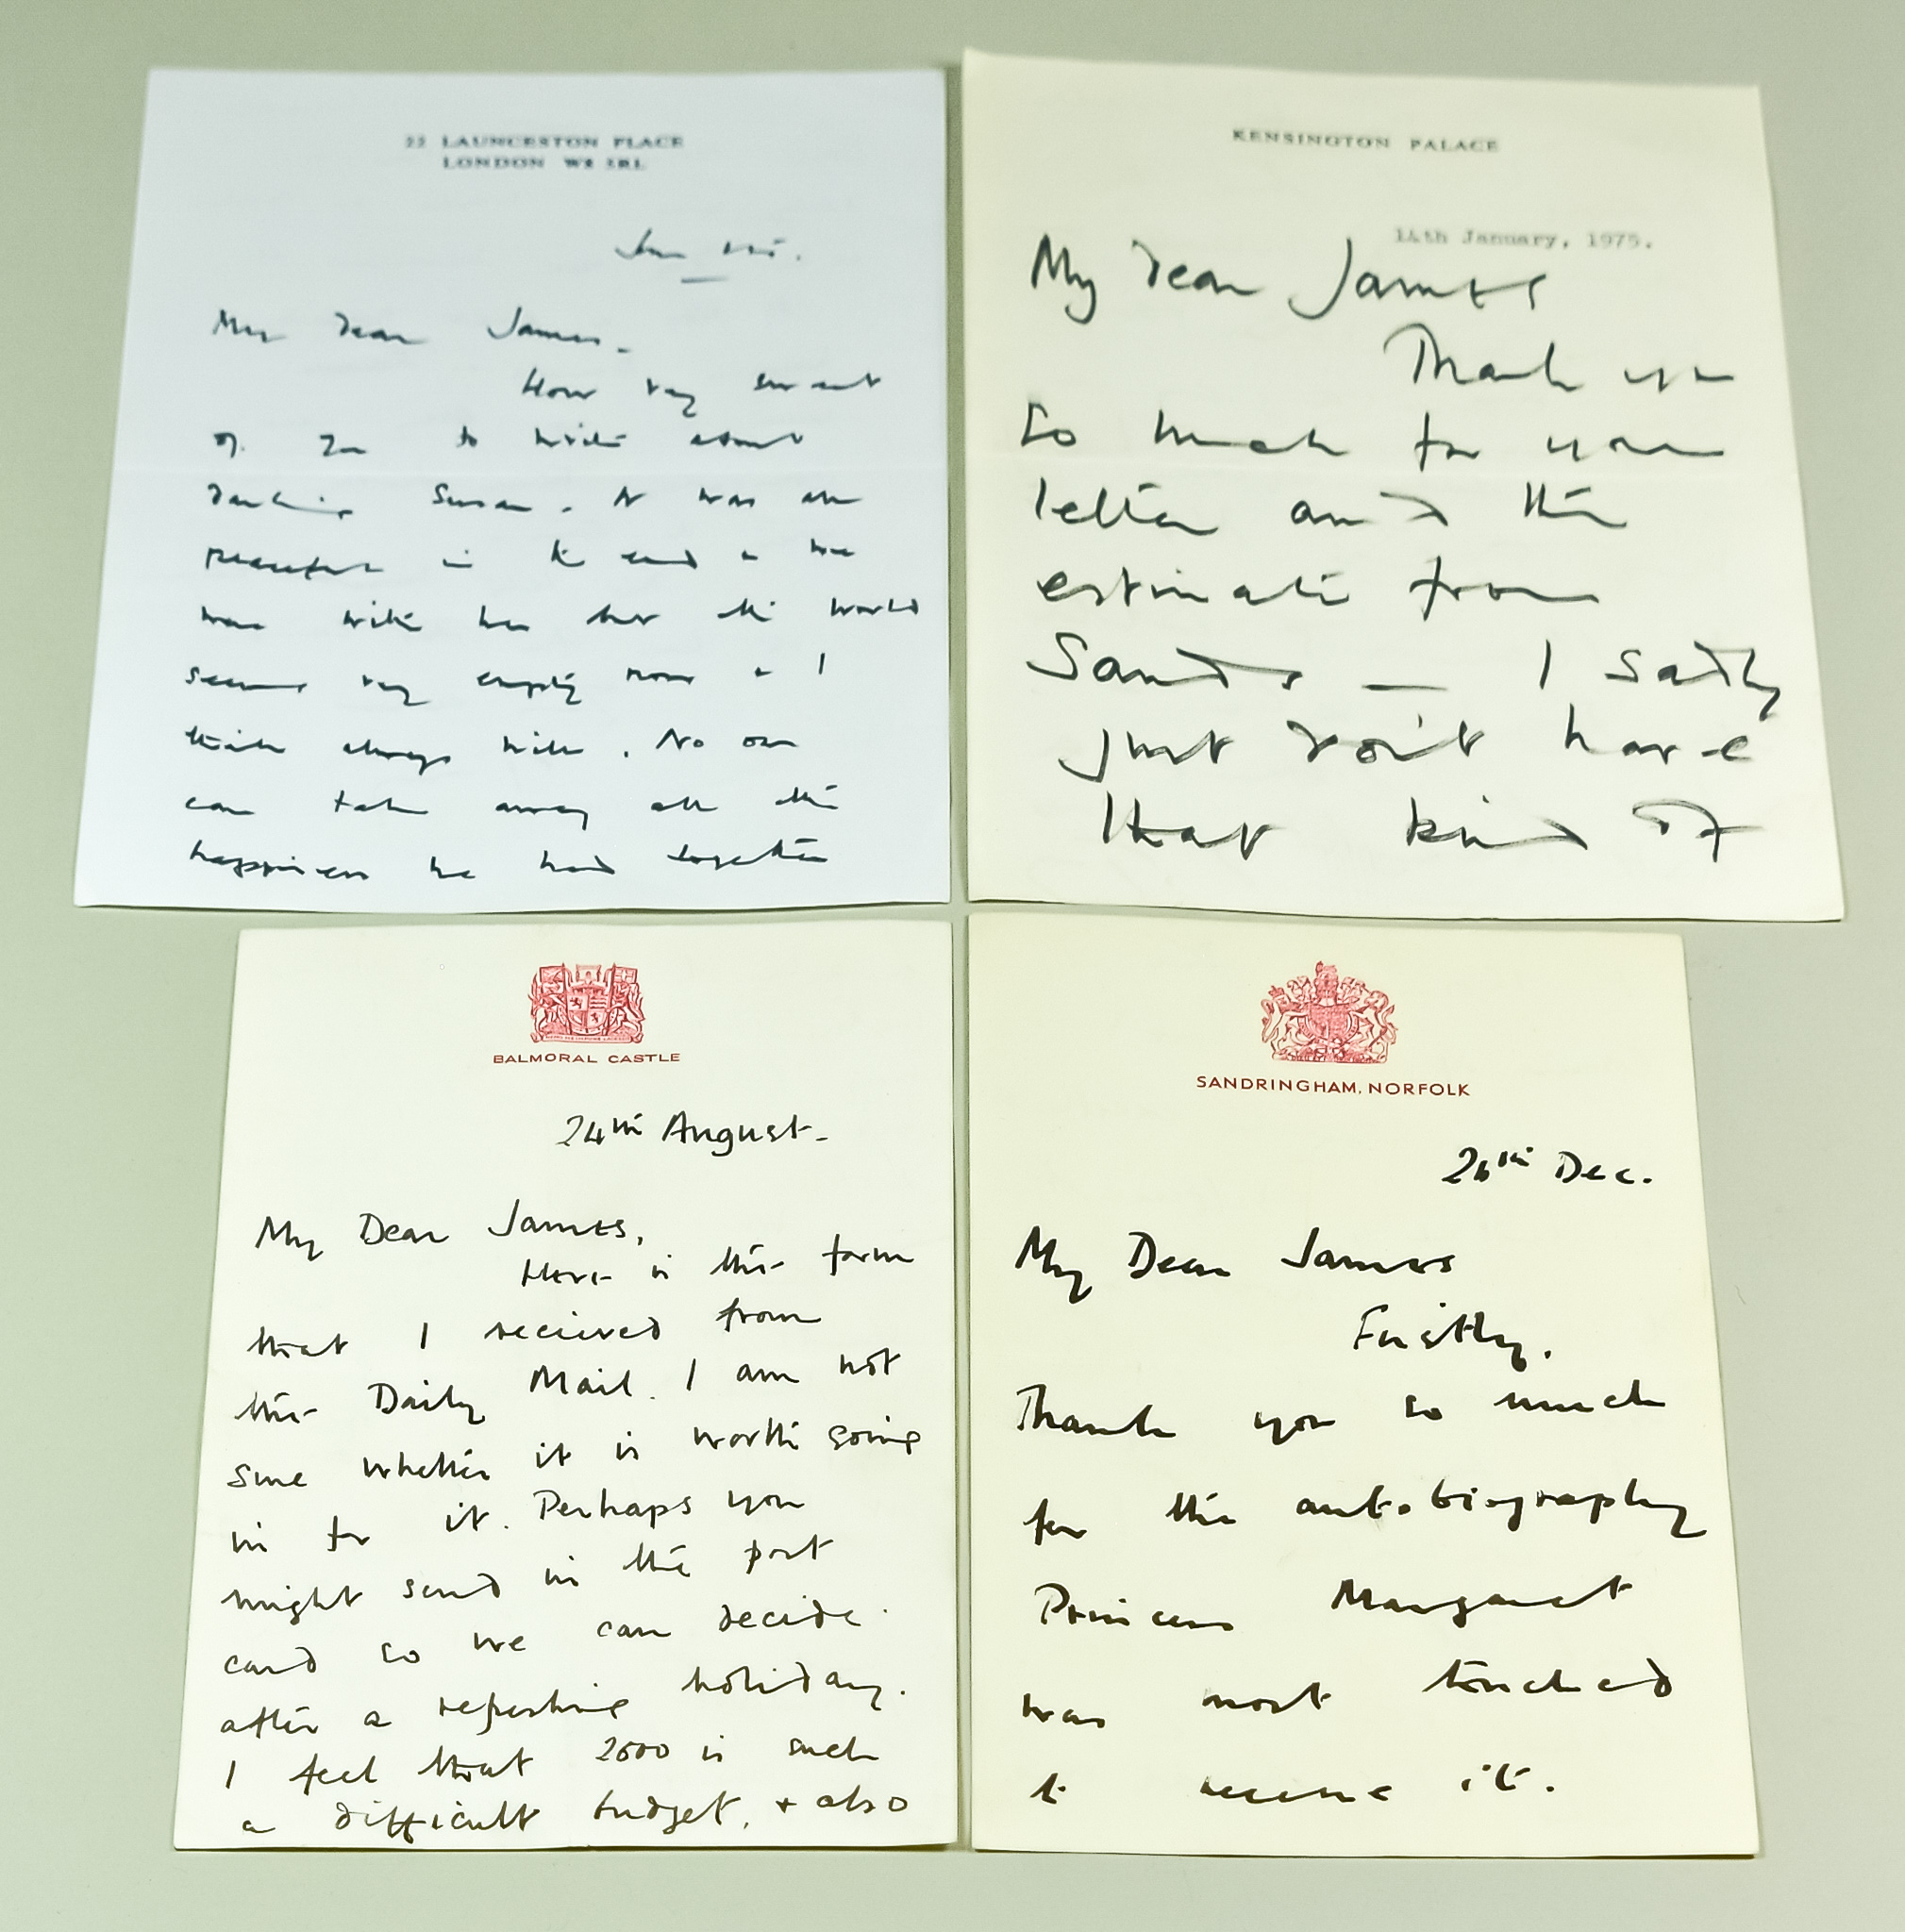 22 LAUNCESTON PLACE
LONDON W8 5RL
My Dear James.
How very sweet
of you to write about
darling Susan. It was all
peaceful in the end & we
were with her but the world
seems very empty now & I
think always will. No one
can take away all the
happiness we had together
KENSINGTON PALACE
14th January, 1975.
My Dear James
Thank you
so much for your
letter and the
estimate from
Sands — I sadly
just don't have
that kind of
BALMORAL CASTLE
24th August.
My Dear James,
Here is the form
that I recieved from
the Daily Mail. I am not
sure whether it is worth going
in for it. Perhaps you
might send in the post
card so we can decide
after a refreshing holiday.
I feel that 2500 is such
a difficult budget, + also
SANDRINGHAM, NORFOLK
26th Dec.
My Dear James
Firstly.
Thank you so much
for the autobiography
Princess Margaret
was most touched
to receive it.